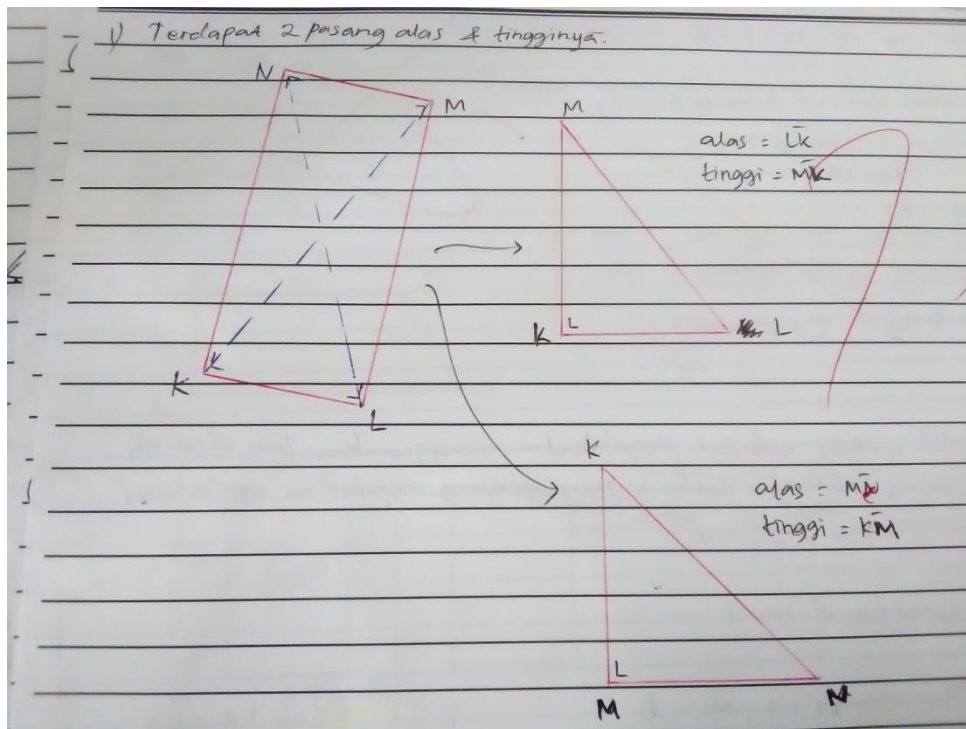 1) Terdapat 2 pasang alas & tingginya.
N
M
K
L
M
alas = LK
tinggi = MK
K
L
K
alas = MN
tinggi = KM
M
N